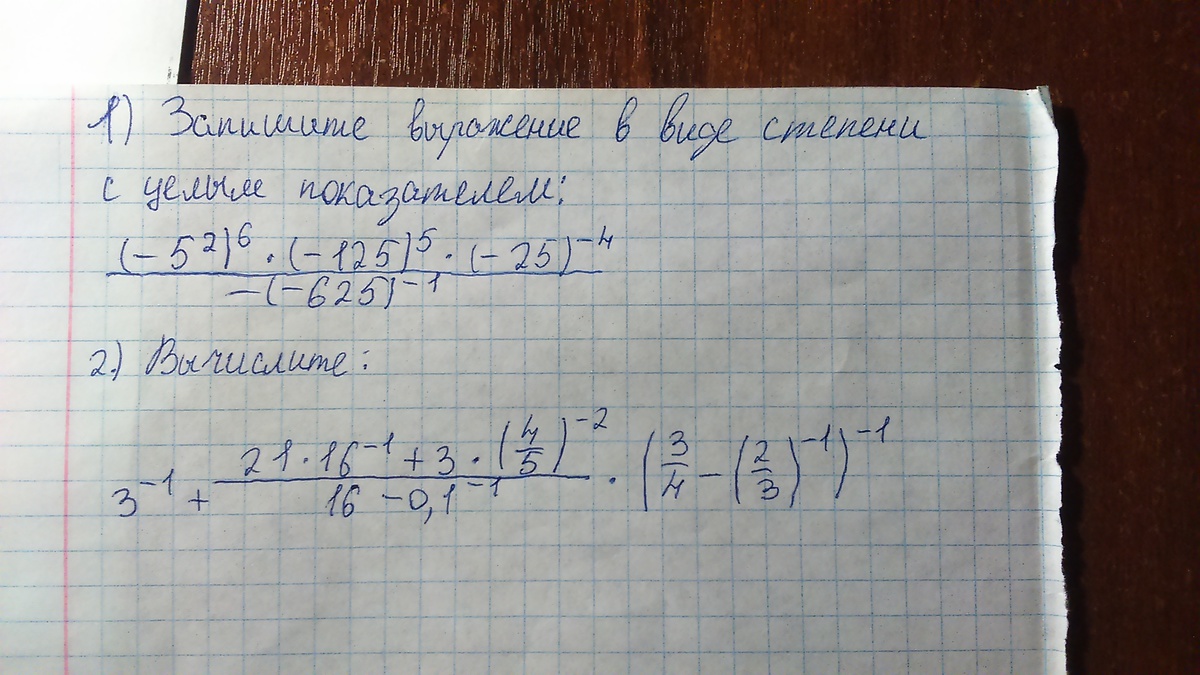 1) Запишите выражение в виде степени
с целым показателем:
(-5²)⁶ · (-125)⁵ · (-25)⁻⁴
-(-625)⁻¹
2.) Вычислите:
3⁻¹ + (21 · 16⁻¹ + 3 · (4/5)⁻²)/(16 - 0,1⁻¹) · (3/4 - (2/3)⁻¹)⁻¹